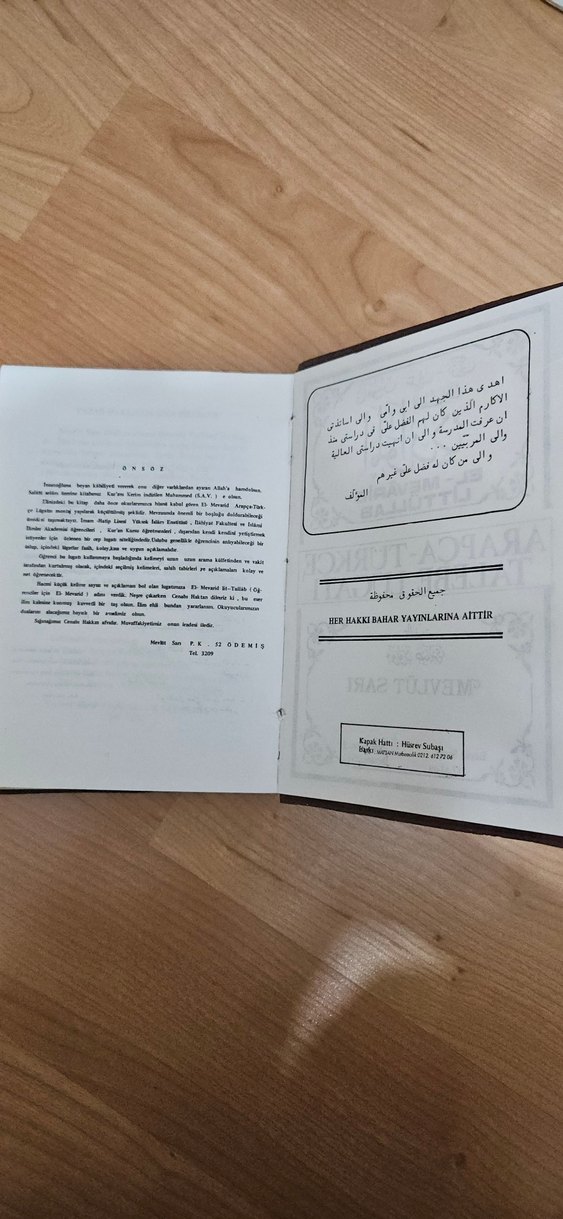 ÖNSÖZ
İnsanoğluna beyan kabiliyeti vererek onu diğer varlıklardan ayıran Allah'a hamdolsun.
Salâtü selâm üzerine kitabımız Kur'anı Kerim indirilen Muhammed (S.A.V.) e olsun.
Elinizdeki bu kitap daha önce okurlarımızca hüsnü kabul gören El- Mevarid Arapça-Türk-
çe Lûgatın montaj yapılarak küçültülmüş şeklidir. Mevzuunda önemli bir boşluğu doldurabileceği
ümidini taşımaktayız. İmam Hatip Lisesi Yüksek İslâm Enstitüsü , İlâhiyat Fakültesi ve İslâmî
İlimler Akademisi öğrencileri , Kur'an Kursu öğretmenleri , dışarıdan kendi kendini yetiştirmek
isteyenler için özlenen bir cep lûgatı niteliğindedir. Üslubu genellikle öğrencinin anlıyabileceği bir
üslup, içindeki lûgatlar fasih, kolay, kısa ve uygun açıklamalıdır.
Öğrenci bu lûgatı kullanmaya başladığında kelimeyi uzun uzun arama külfetinden ve vakit
israfından kurtulmuş olarak, içindeki seçilmiş kelimeleri, ıstılah tabirleri ve açıklamaları kolay ve
net öğrenecektir.
Hacmi küçük kelime sayısı ve açıklaması bol olan lugatımıza El- Mevarid lit-Tullâb ( Öğ-
renciler için El- Mevarid ) adını verdik. Neşre çıkarken Cenabı Haktan dileriz ki , bu eser
ilim kalesine konmuş kuvvetli bir taş olsun. İlim ehli bundan yararlansın. Okuyucularımızın
dualarını alacağımız hayırlı bir amelimiz olsun.
Sığınağımız Cenabı Hakkın affıdır. Muvaffakiyetimiz onun iradesi iledir.
Mevlüt Sarı P.K. 52 ÖDEMİŞ
Tel. 3209
اهدى هذا الجهد الى ابى وامّى والى اساتذتى
الاكارم الّذين كان لهم الفضل علىّ فى دراستى منذ
ان عرفت المدرسة والى ان انهيت دراستى العالية
والى المربّيين ...
والى من كان له فضل علىّ غيرهم
المؤلّف
جميع الحقوق محفوظة
HER HAKKI BAHAR YAYINLARINA AİTTİR
Kapak Hattı : Hüsrev Subaşı
MATSAN Matbaacılık 0212. 612 72 06